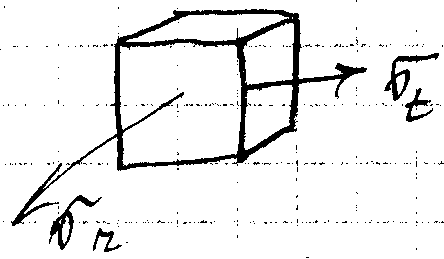 σt
σr